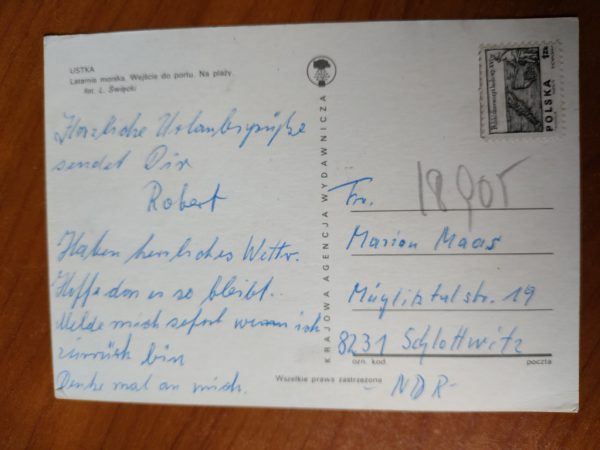 USTKA
Latarnia morska. Wejście do portu. Na plaży.
fot. L. Święcki
Herzliche Urlaubsgrüße
sendet Dir
Robert
Haben herrliches Wettr.
Hoffe das es so bleibt.
Melde mich sofort wenn ich
zurück bin
Denke mal an mich.
KRAJOWA AGENCJA WYDAWNICZA
POLSKA
18905
Frl.
Marion Maas
Müglitztalstr. 19
8231 Schlottwitz
ozn. kod.
poczta
- NDR -
Wszelkie prawa zastrzeżone